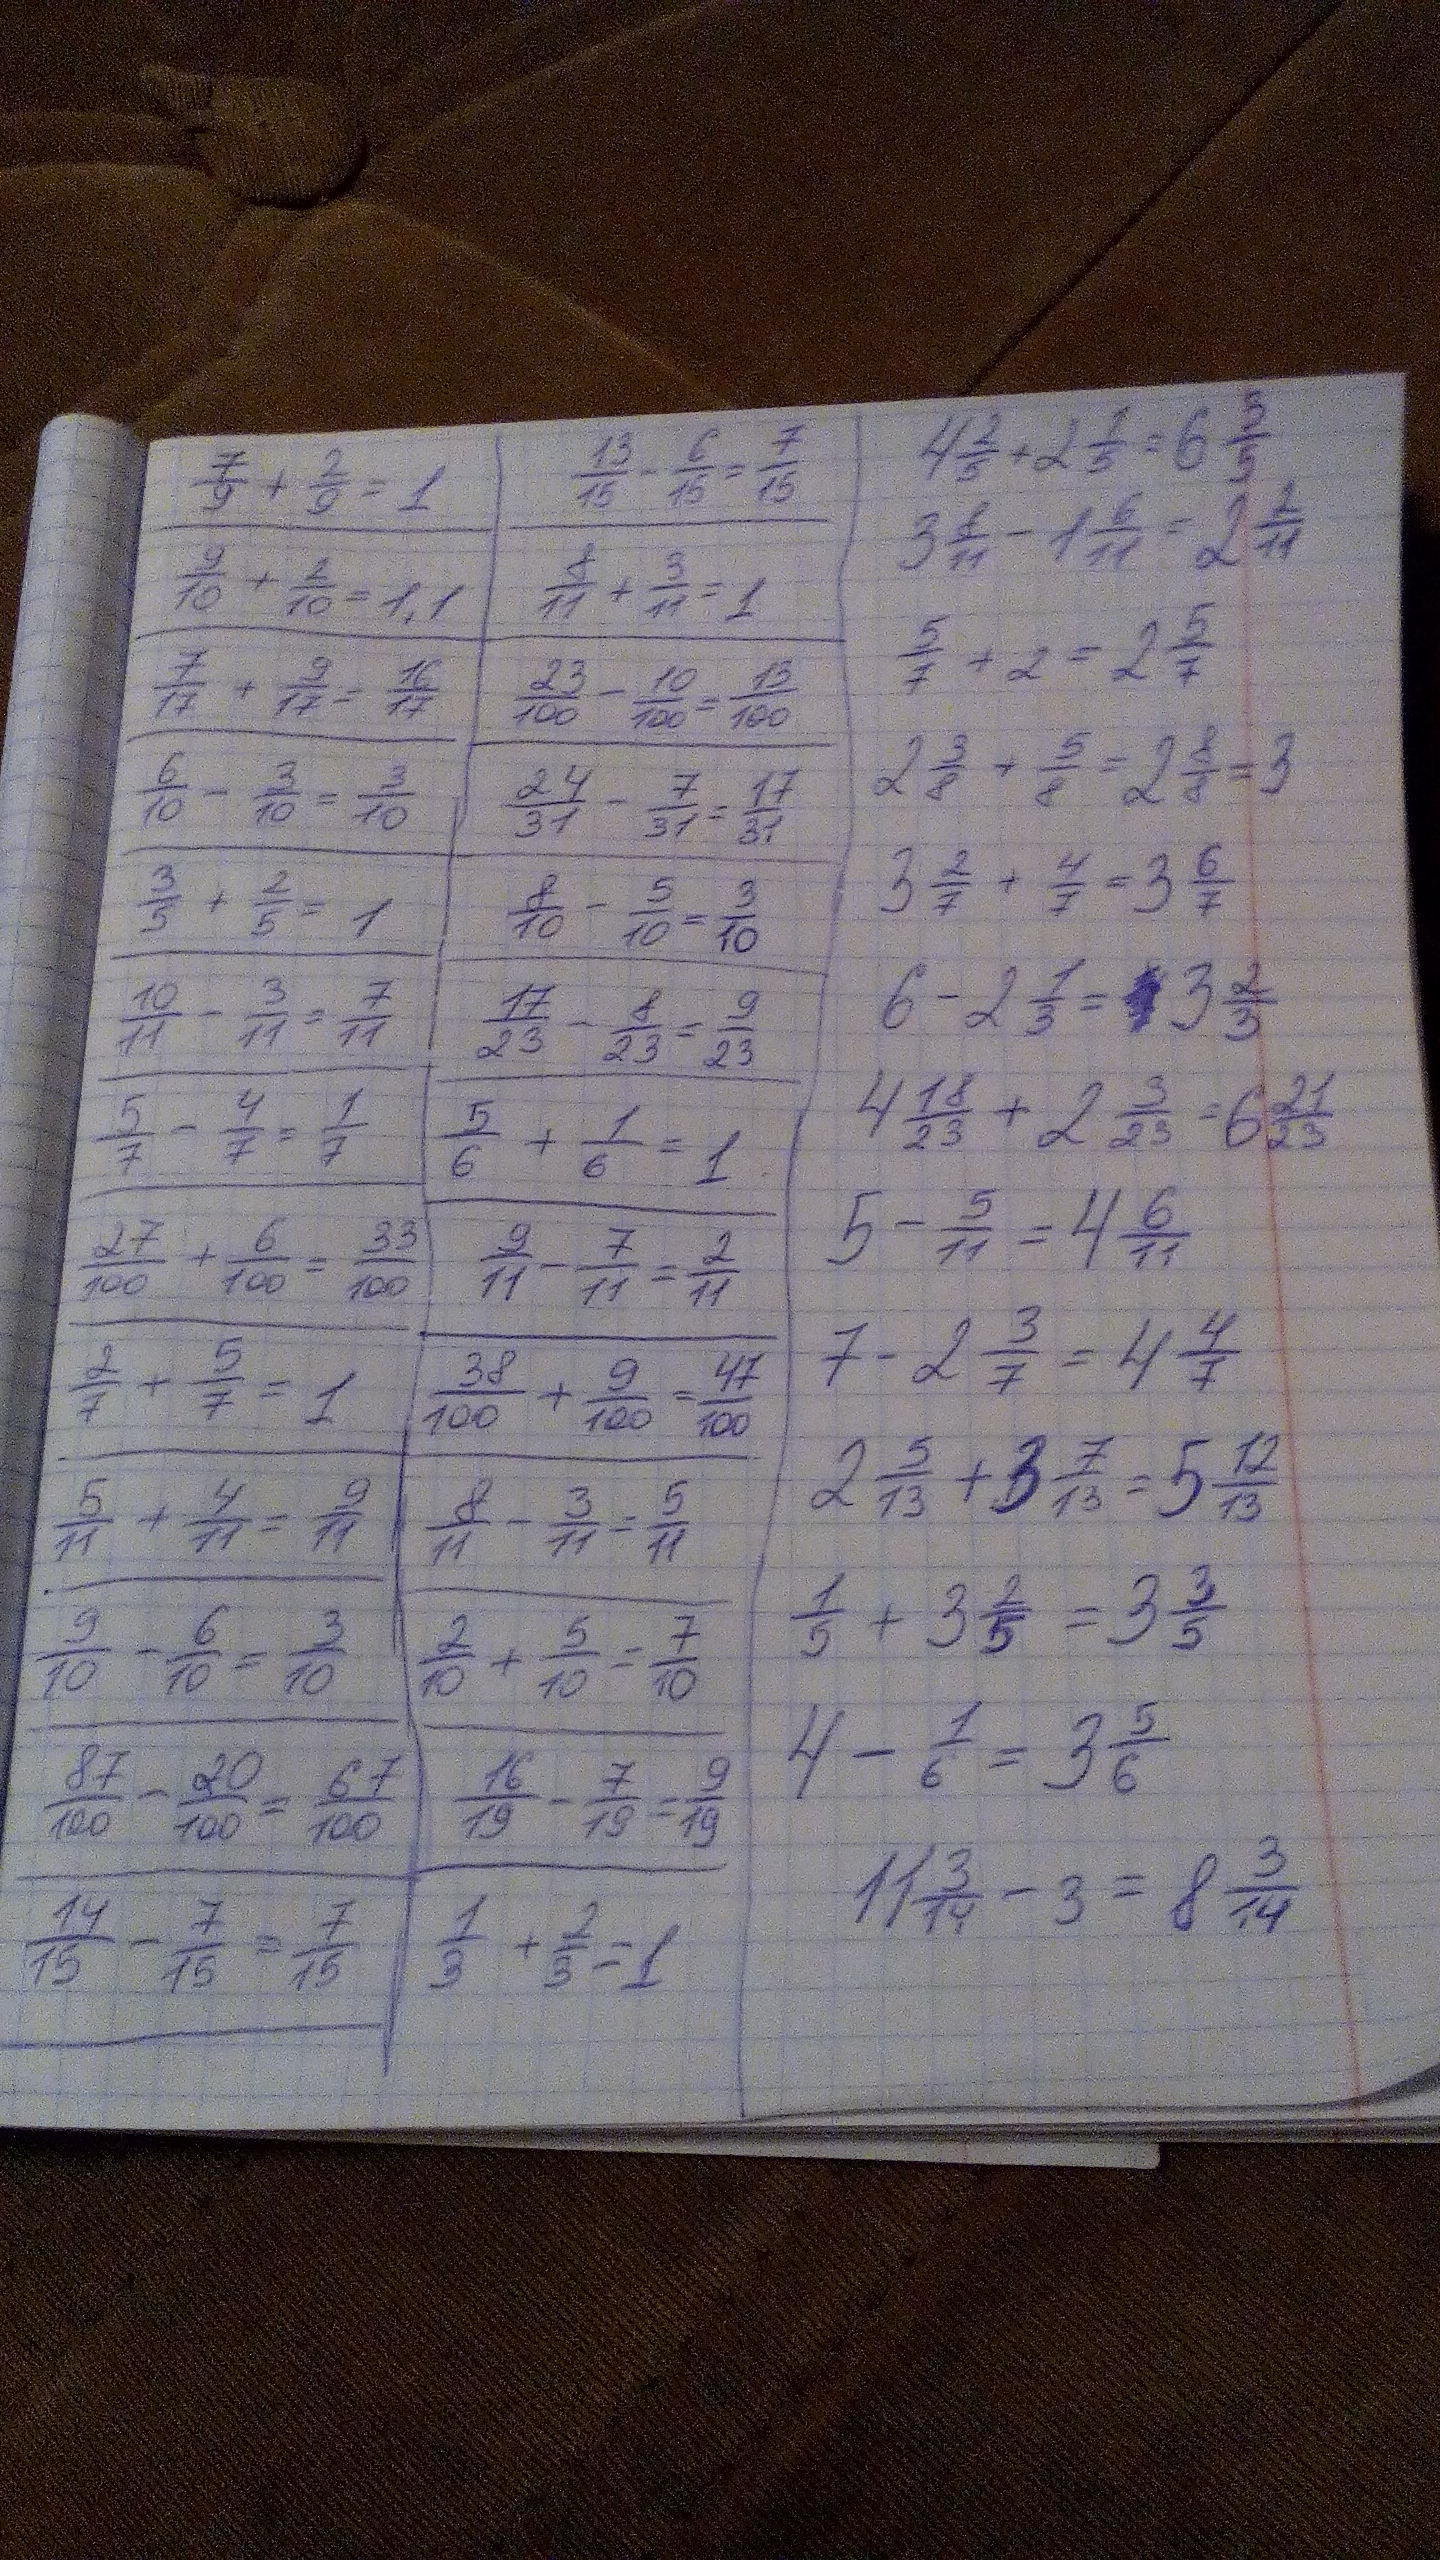 7/9 + 2/9 = 1
9/10 + 2/10 = 1,1
7/17 + 9/17 = 16/17
6/10 - 3/10 = 3/10
3/5 + 2/5 = 1
10/11 - 3/11 = 7/11
5/7 - 4/7 = 1/7
27/100 + 6/100 = 33/100
2/7 + 5/7 = 1
5/11 + 4/11 = 9/11
9/10 - 6/10 = 3/10
87/100 - 20/100 = 67/100
14/15 - 7/15 = 7/15
13/15 - 6/15 = 7/15
8/11 + 3/11 = 1
23/100 - 10/100 = 13/100
24/31 - 7/31 = 17/31
8/10 - 5/10 = 3/10
17/23 - 8/23 = 9/23
5/6 + 1/6 = 1
9/11 - 7/11 = 2/11
38/100 + 9/100 = 47/100
8/11 - 3/11 = 5/11
2/10 + 5/10 = 7/10
16/19 - 7/19 = 9/19
1/3 + 2/3 = 1
4 2/5 + 2 1/5 = 6 3/5
3 8/11 - 1 6/11 = 2 2/11
5/7 + 2 = 2 5/7
2 3/8 + 5/8 = 2 8/8 = 3
3 2/7 + 4/7 = 3 6/7
6 - 2 1/3 = 3 2/3
4 18/23 + 2 3/23 = 6 21/23
5 - 5/11 = 4 6/11
7 - 2 3/7 = 4 4/7
2 5/13 + 3 7/13 = 5 12/13
1/5 + 3 2/5 = 3 3/5
4 - 1/6 = 3 5/6
11 3/14 - 3 = 8 3/14